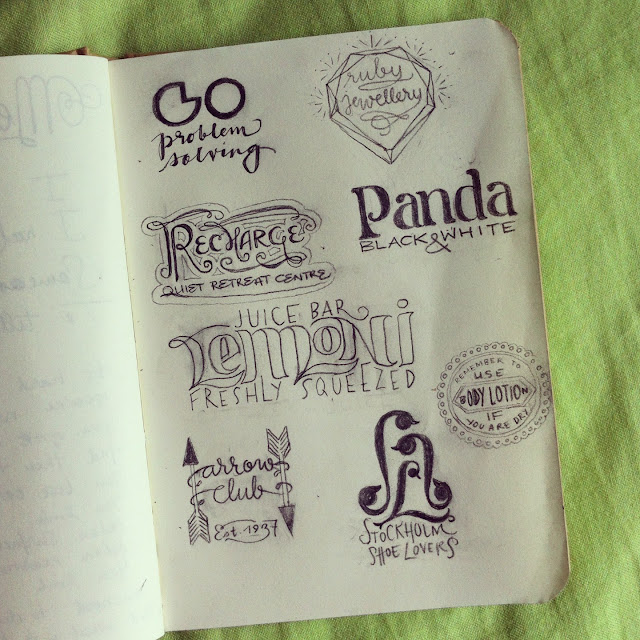 GO
problem
solving
ruby
jewellery
Panda
BLACK & WHITE
RECHARGE
QUIET RETREAT CENTRE
JUICE BAR
LEMONI
FRESHLY SQUEEZED
REMEMBER TO
USE
BODY LOTION
IF
YOU ARE DRY
arrow
club
Est. 1937
STOCKHOLM
SHOE LOVERS